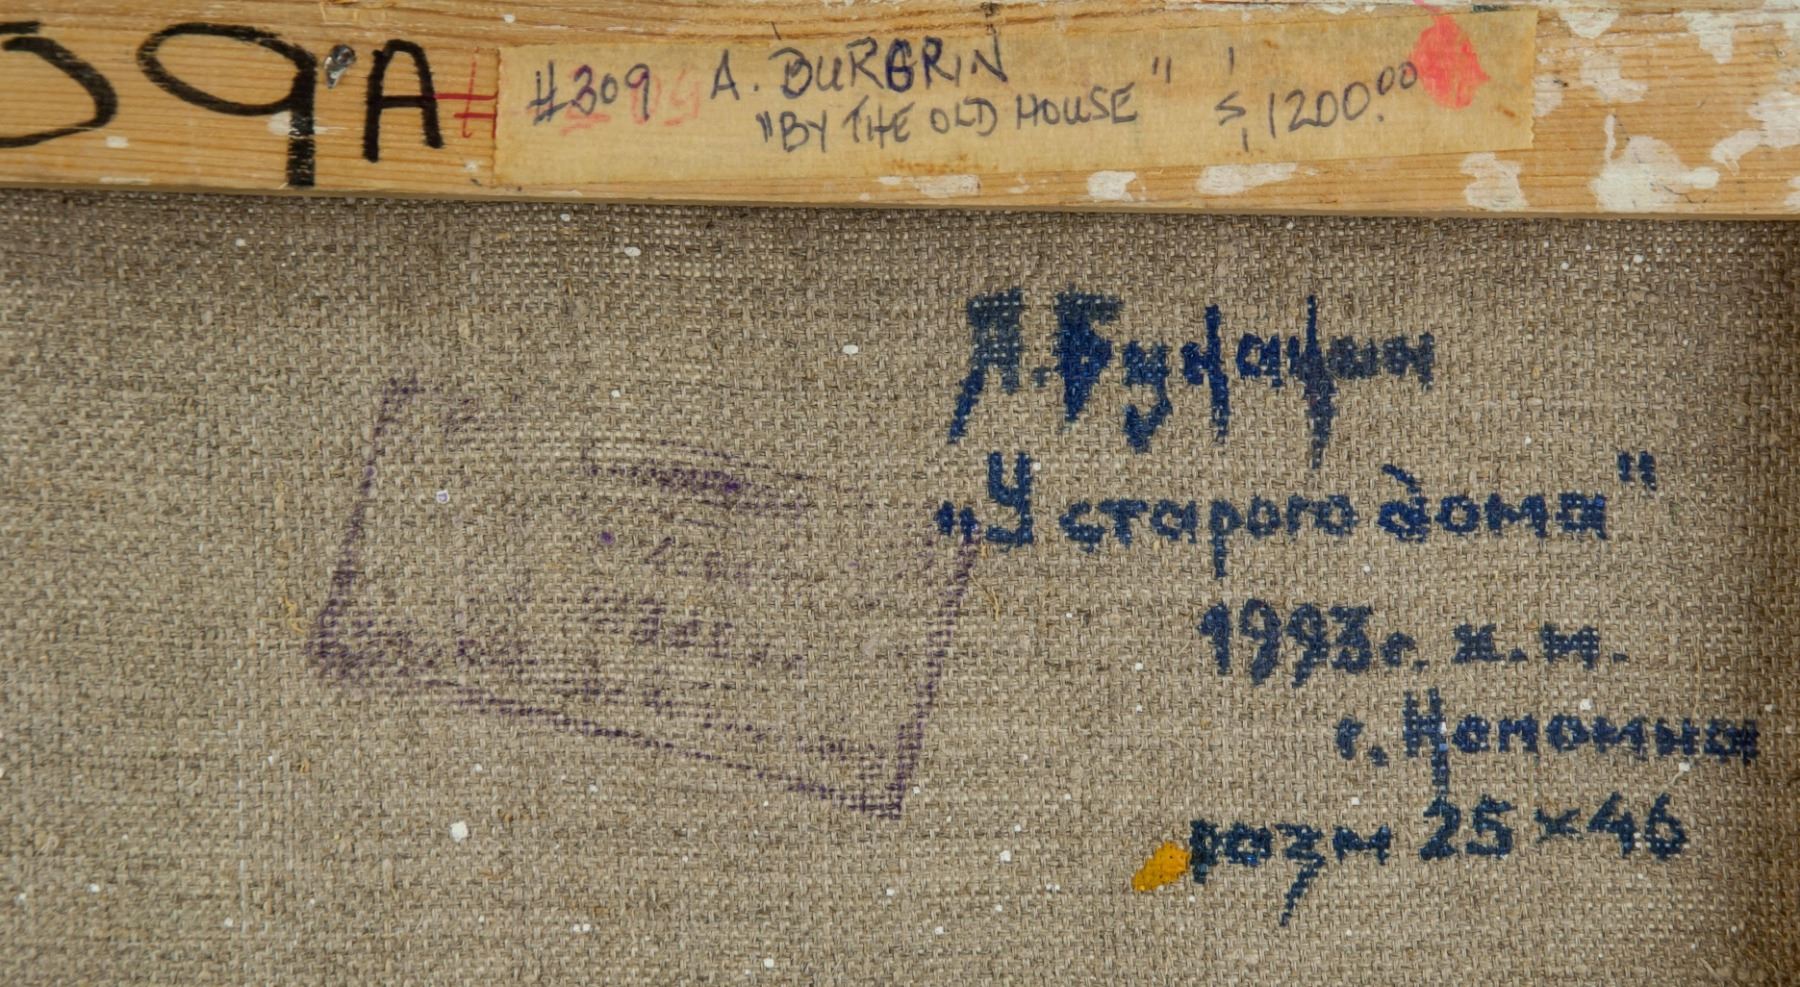 59A #
#309 A. BURGRIN
"BY THE OLD HOUSE" $1200.00
А.
„У старого дома"
1993г. х.м.
г.
разм 25×46